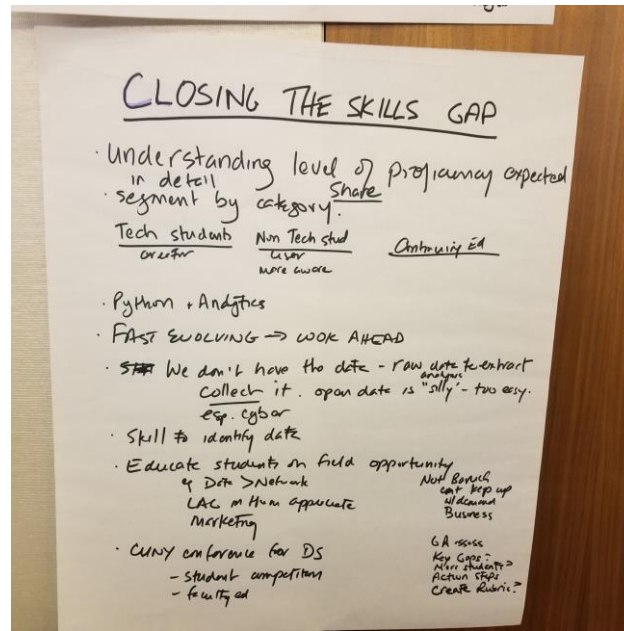 CLOSING THE SKILLS GAP
· Understanding level of proficiency expected
in detail
Share
· segment by category.
Tech students Non Tech stud Continuing Ed
creator user
more aware
· Python + Analytics
· FAST EVOLVING → LOOK AHEAD
· We don't have the data - raw data to extract
analyze
collect it. open data is "silly" - too easy.
esp. cyber
· Skill to identify data
· Educate students on field opportunity
eg Data > Network
LAG in Hum appreciate
Marketing
Not Baruch
can't keep up
w/demand
Business
· CUNY conference for DS
- student competition
- faculty ed
Key Gaps:
More students?
Action Steps
Create Rubric?